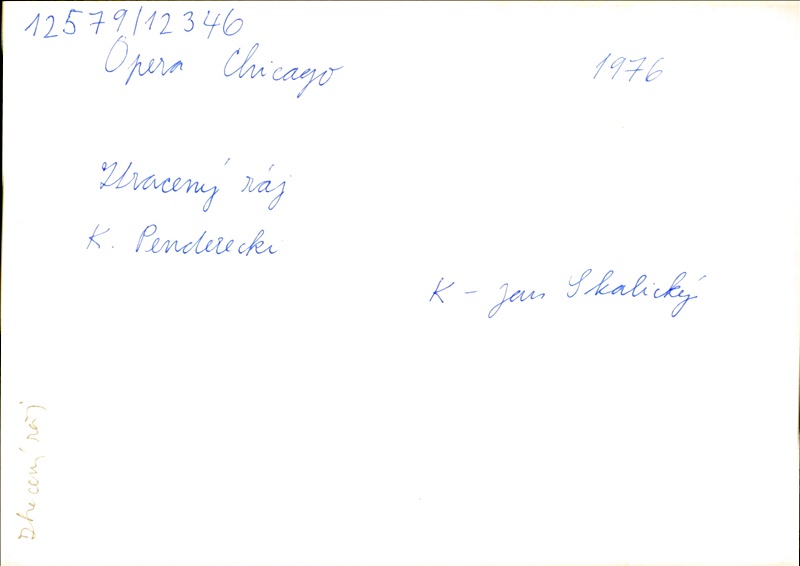 12579/12346
Opera Chicago
1976
Ztracený ráj
K. Penderecki
K - Jan Skalický
Ztracený ráj